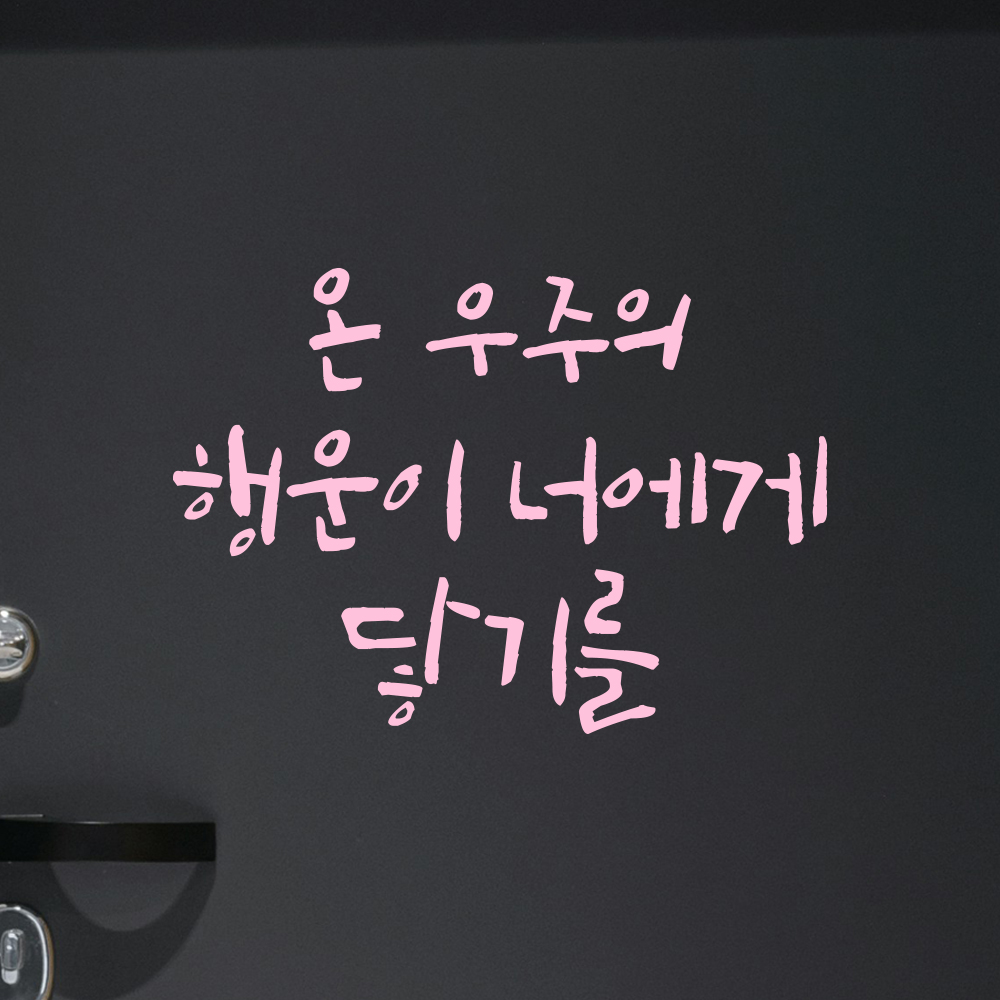 온 우주의
행운이 너에게
닿기를